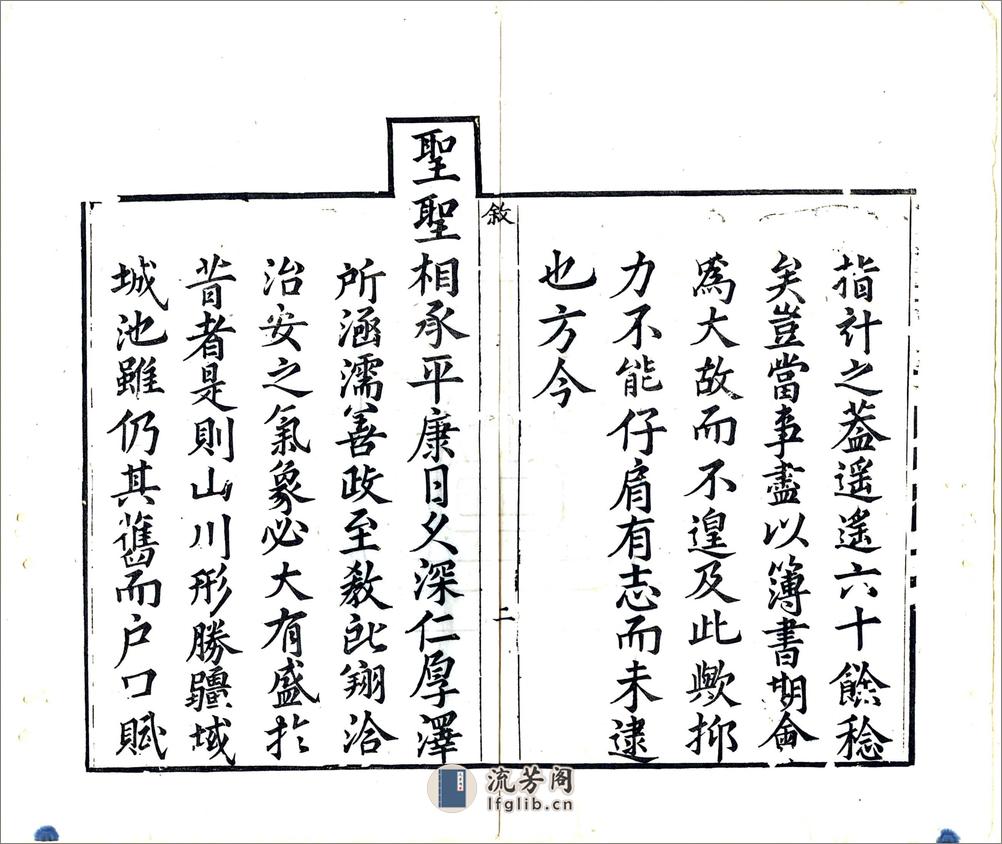 指計之葢遥遥六十餘稔
矣豈當事盡以簿書期會
爲大故而不遑及此歟抑
力不能仔肩有志而未逮
也方今
敘
二
聖聖相承平康日久深仁厚澤
所涵濡善政至敎所翔洽
治安之氣象必大有盛於
昔者是則山川形勝疆域
城池雖仍其舊而户口賦
流芳阁
lfglib.cn